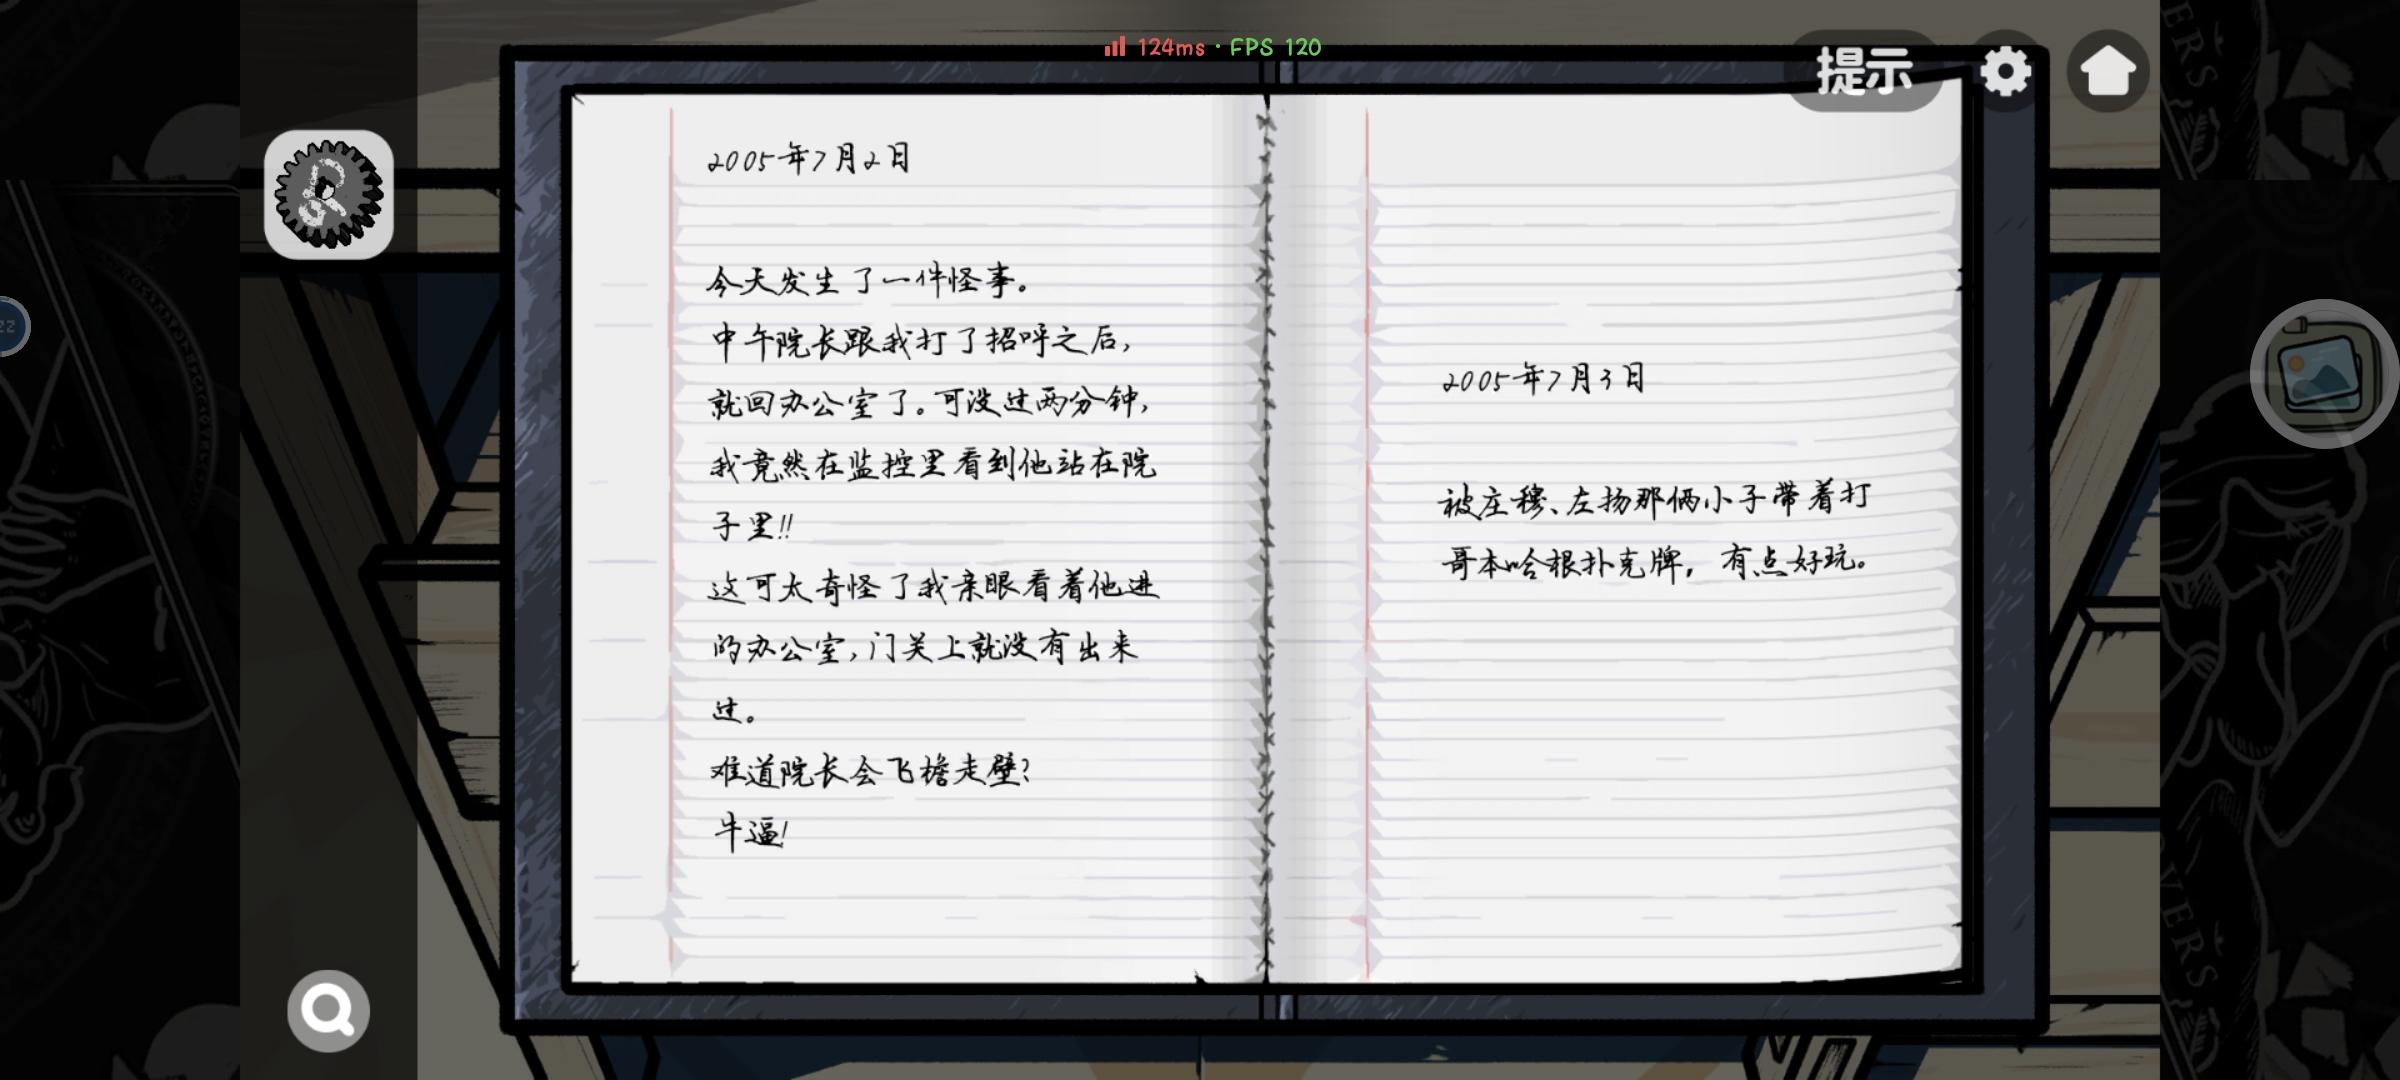 124ms · FPS 120
提示
2005年7月2日
今天发生了一件怪事。
中午院长跟我打了招呼之后,
就回办公室了。可没过两分钟,
我竟然在监控里看到他站在院
子里!!
这可太奇怪了我亲眼看着他进
的办公室,门关上就没有出来
过。
难道院长会飞檐走壁?
牛逼!
2005年7月3日
被庄穆、左扬那俩小子带着打
哥本哈根扑克牌,有点好玩。